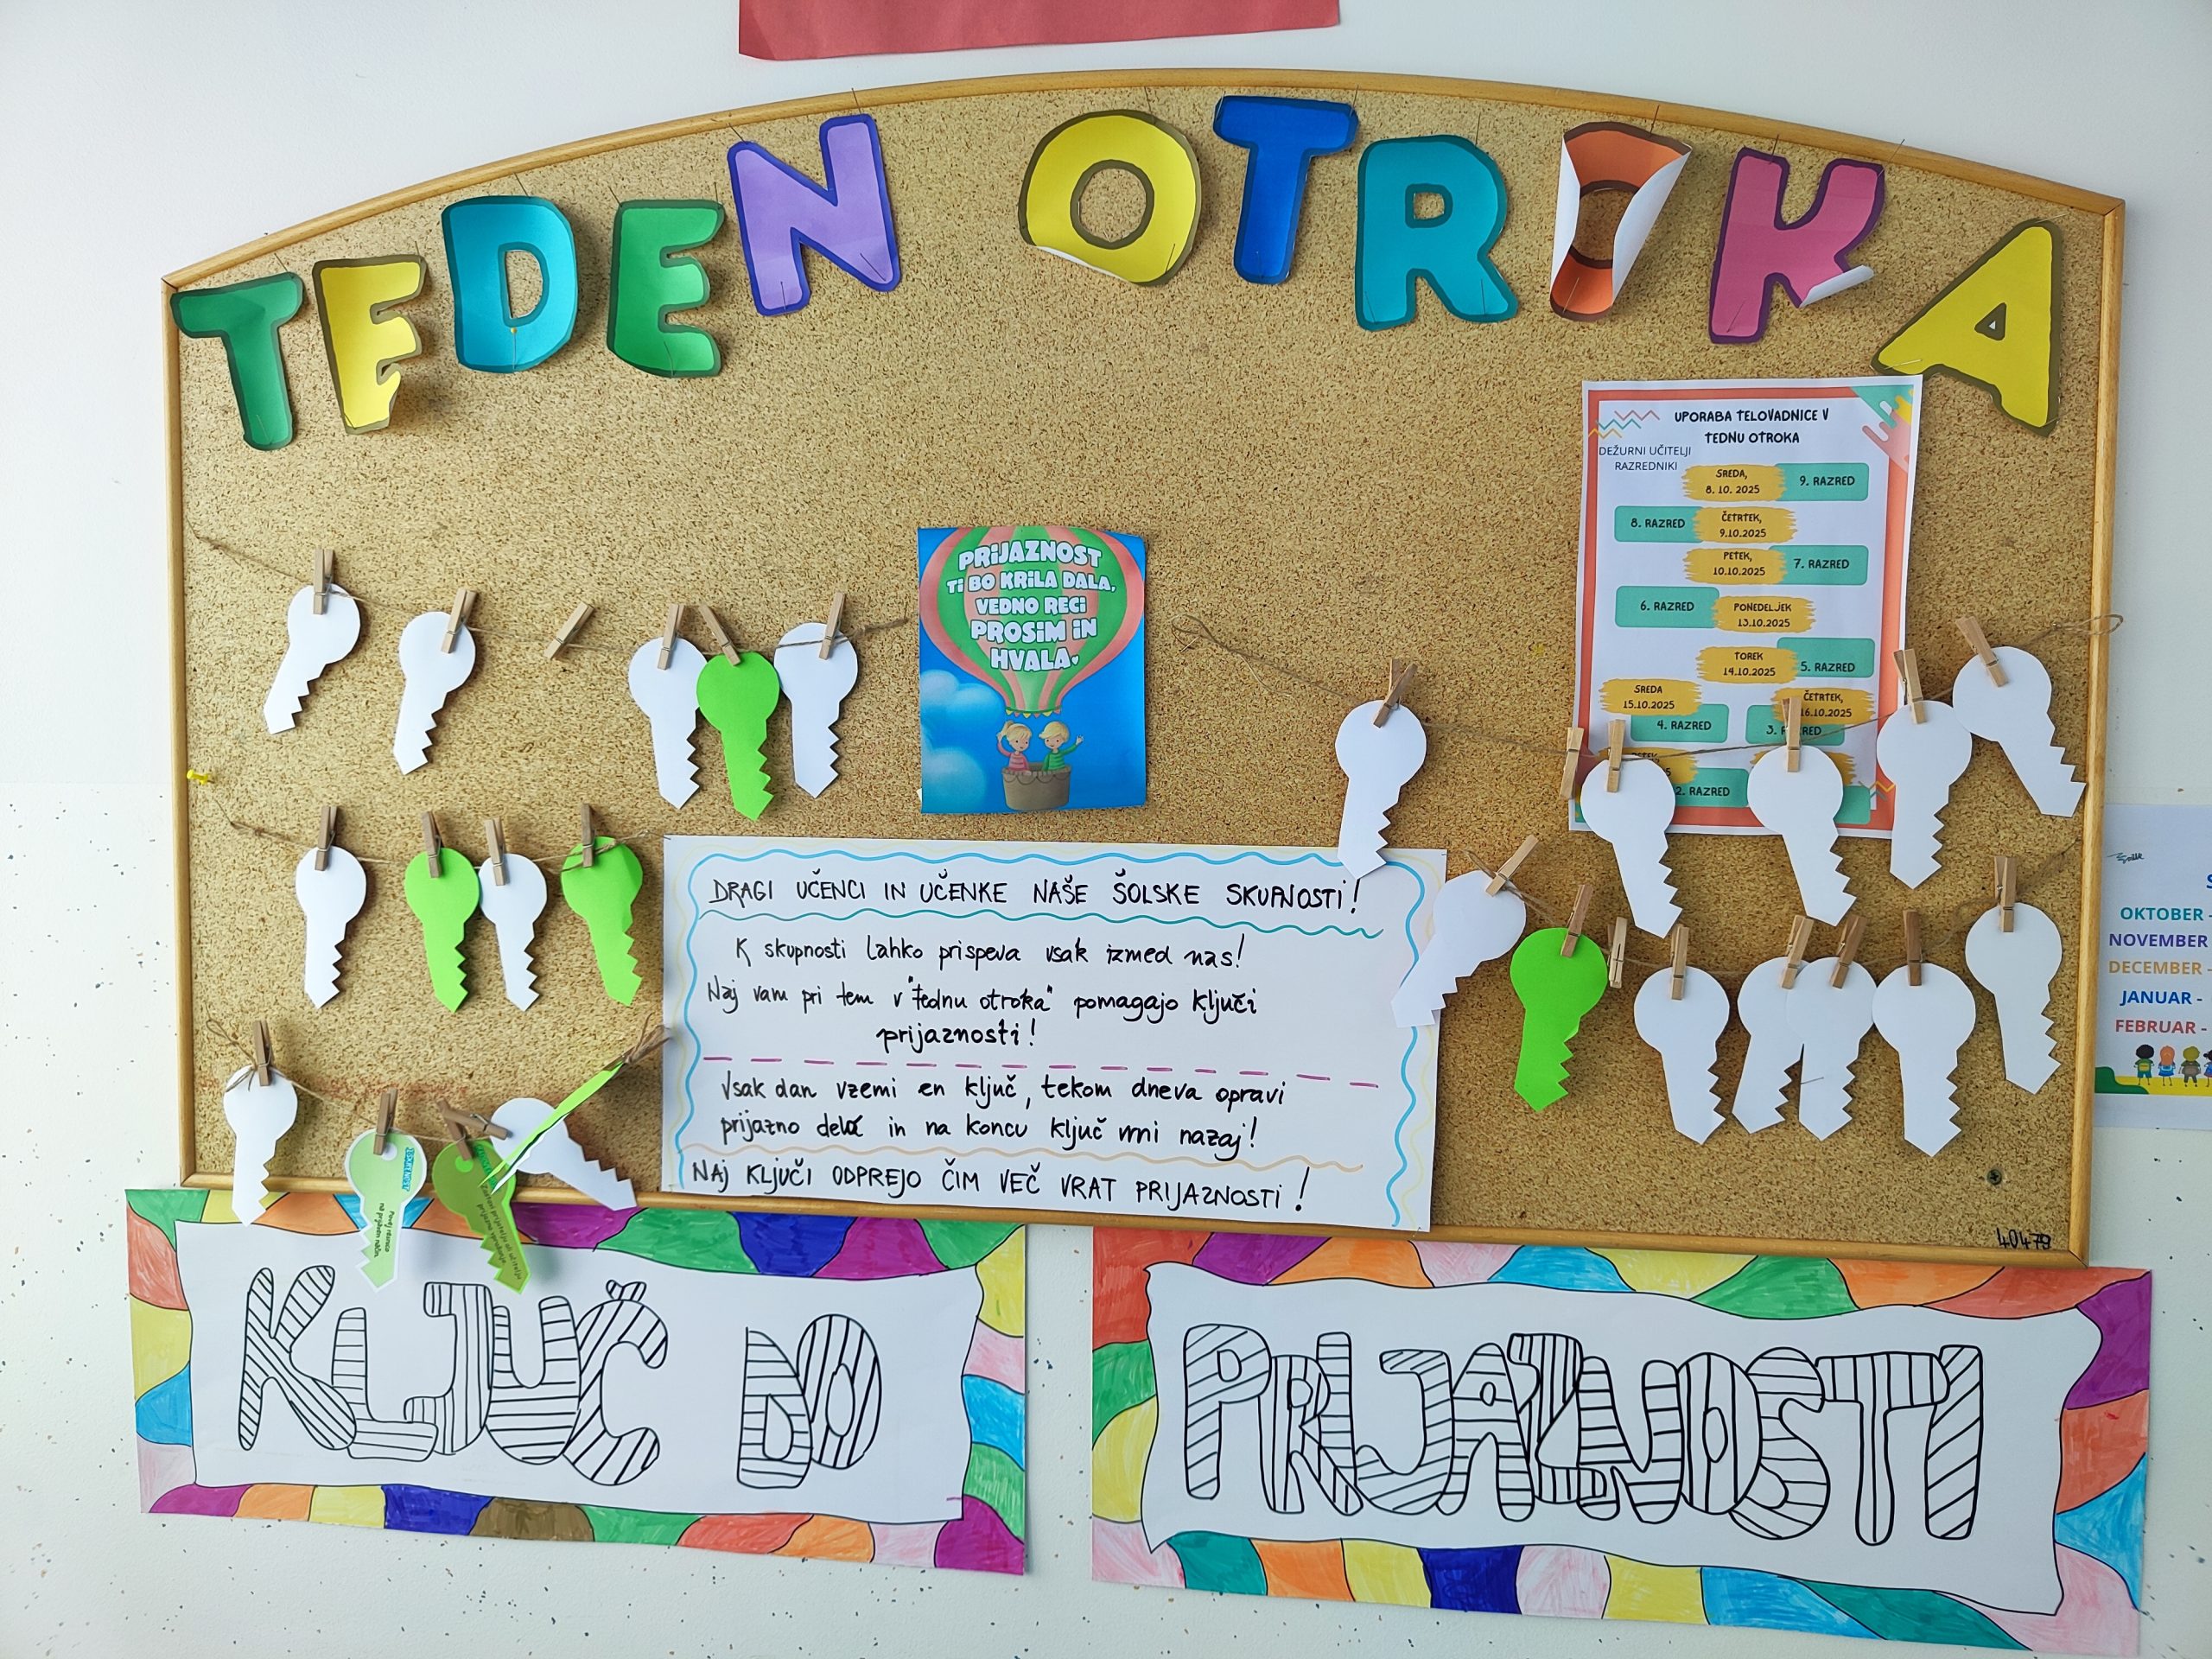 TEDEN OTROKA
UPORABA TELOVADNICE V
TEDNU OTROKA
DEŽURNI UČITELJI
RAZREDNIKI
SREDA,
8. 10. 2025
9. RAZRED
8. RAZRED
ČETRTEK,
9.10.2025
PETEK,
10.10.2025
7. RAZRED
6. RAZRED
PONEDELJEK
13.10.2025
TOREK
14.10.2025
5. RAZRED
SREDA
15.10.2025
4. RAZRED
ČETRTEK,
16.10.2025
3. RAZRED
2. RAZRED
PRIJAZNOST
TI BO KRILA DALA,
VEDNO RECI
PROSIM IN
HVALA
DRAGI UČENCI IN UČENKE NAŠE ŠOLSKE SKUPNOSTI!
K skupnosti lahko prispeva vsak izmed nas!
Naj vam pri tem v "tednu otroka" pomagajo ključi
prijaznosti!
Vsak dan vzemi en ključ, tekom dneva opravi
prijazno delo in na koncu ključ vrni nazaj!
NAJ KLJUČI ODPREJO ČIM VEČ VRAT PRIJAZNOSTI!
40479
OKTOBER -
NOVEMBER
DECEMBER -
JANUAR -
FEBRUAR -
KLJUČ DO
PRIJAZNOSTI